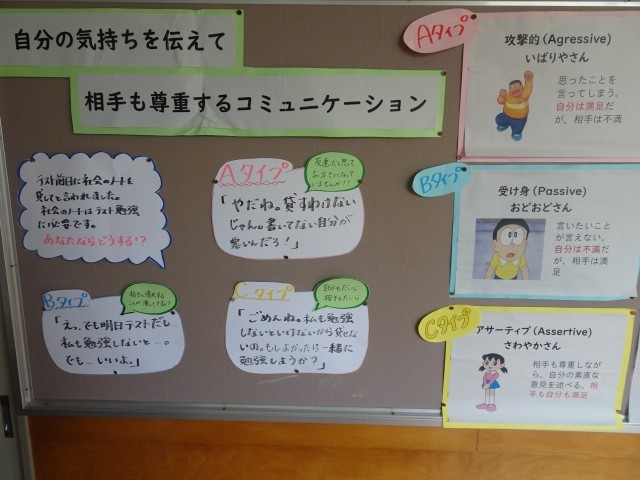 自分の気持ちを伝えて
相手も尊重するコミュニケーション
テスト前日に社会のノートを
見してと言われました。
社会のノートはテスト勉強
に必要です。
あなたならどうする!?
Aタイプ
「やだね。貸すわけない
じゃん。書いてない自分が
悪いんだろ!」
Bタイプ
「えっ、でも明日テストだし
私も勉強しないと…。
でも…いいよ。」
Cタイプ
自分もだいじ
相手もだいじ
「ごめんね。私も勉強
しないといけないから貸せな
いの。もしよかったら一緒に
勉強しようか?」
Aタイプ
攻撃的(Agressive)
いばりやさん
思ったことを
言ってしまう。
自分は満足だ
が、相手は不満
Bタイプ
受け身(Passive)
おどおどさん
言いたいこと
が言えない。
自分は不満だ
が、相手は満
足
Cタイプ
アサーティブ(Assertive)
さわやかさん
相手も尊重しなが
ら、自分の素直な
意見を述べる。相
手も自分も満足